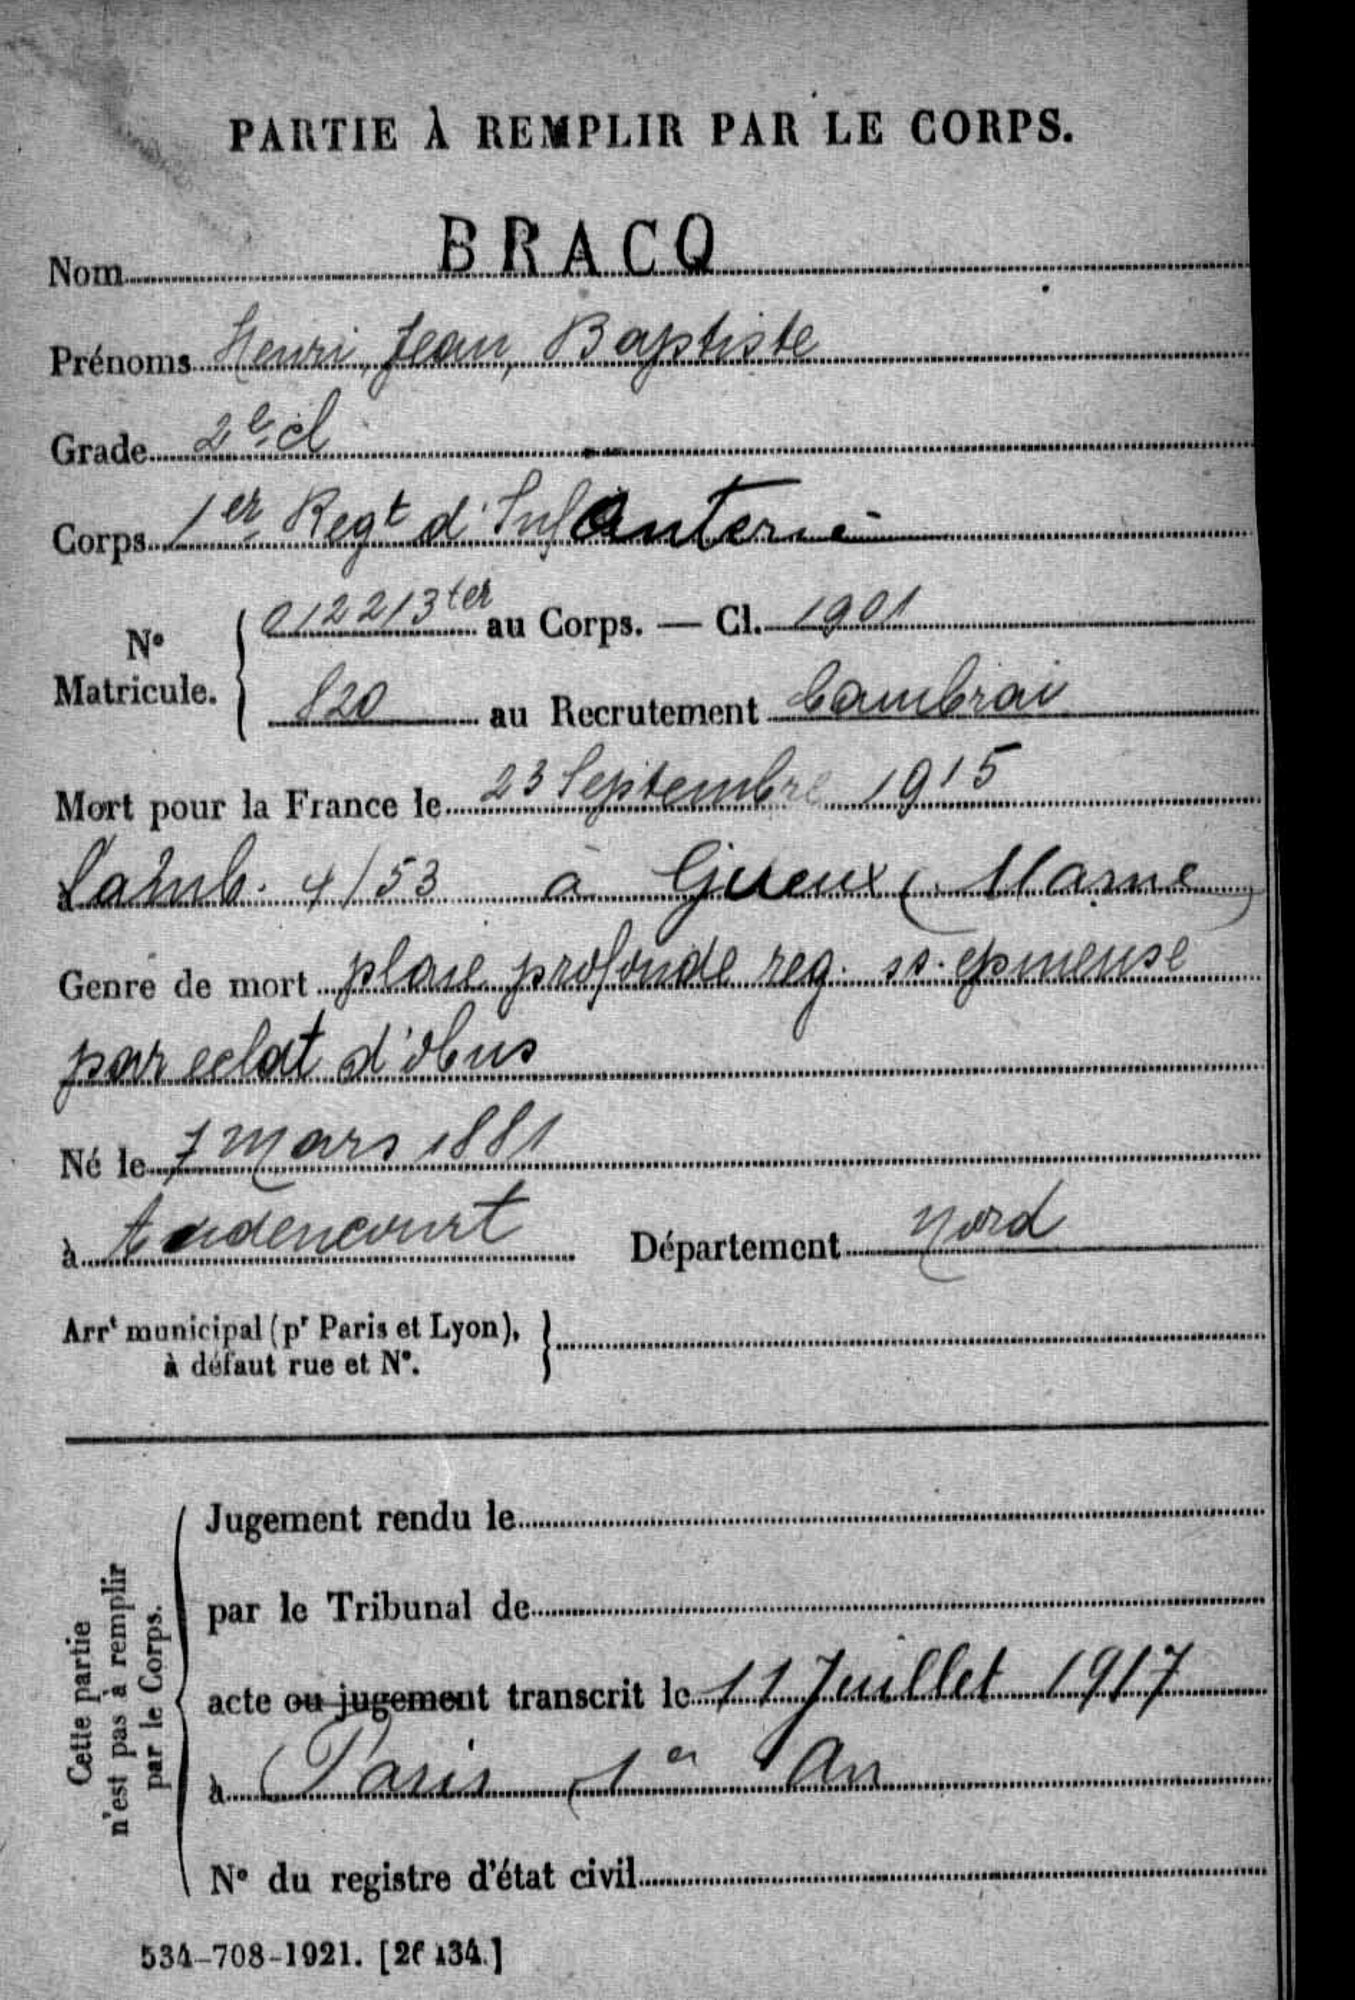 PARTIE À REMPLIR PAR LE CORPS.
Nom BRACQ
Prénoms Henri, Jean, Baptiste
Grade 2e cl
Corps 1er Regt d'Infanterie
N° Matricule. 012213ter au Corps. — Cl. 1901
820 au Recrutement Cambrai
Mort pour la France le 23 Septembre 1915
à l'amb. 4/53 à Gueux (Marne)
Genre de mort plaie profonde reg. ss. epineuse
par eclat d'obus
Né le 7 mars 1881
à Audencourt Département Nord
Arrt municipal (pr Paris et Lyon),
à défaut rue et N°.
Cette partie
n'est pas à remplir
par le Corps.
Jugement rendu le
par le Tribunal de
acte ou jugement transcrit le 11 Juillet 1917
à Paris 1er Arr
N° du registre d'état civil
534-708-1921. [26134.]